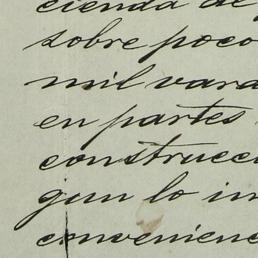 cienda de
sobre poco
mil vara
en partes
construcci
gun lo in
convenienc